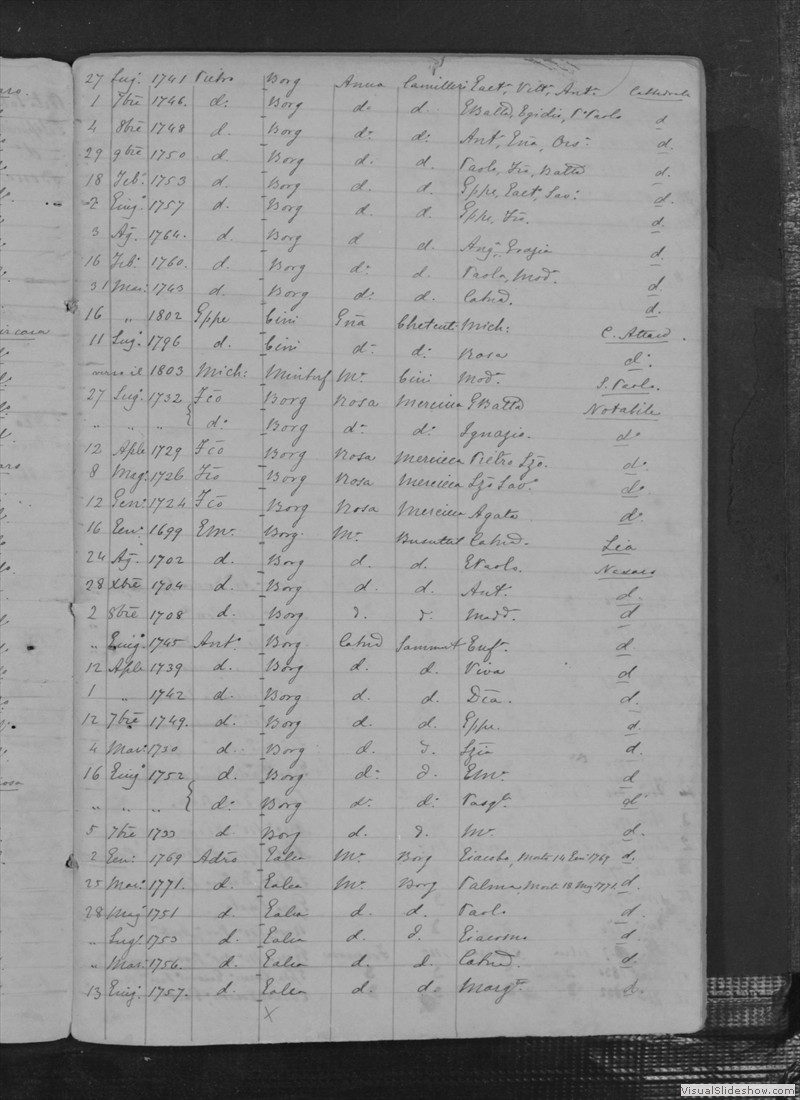 27 Lug. 1741 Pietro Borg Anna Camilleri Gaet, Vitt, Ant. Cathedrale
1 7bre 1746. d. Borg d. d. GBatta, Egidio, Paolo d
4 8bre 1748 d. Borg d. d. Ant, Gña, Ors. d.
29 9bre 1750 d. Borg d. d. Paolo, Fco, Batta d.
18 Feb. 1753 d. Borg d. d. Gppe, Gaet, Sav. d.
2 Giug. 1757 d. Borg d. d. Gppe, Fco. d.
3 Ag. 1764. d. Borg d d. Ang, Grazia d.
16 Feb. 1760. d. Borg d. d. Paola, Mod. d.
31 Mar. 1743 d. Borg d. d. Catnd. d.
16 „ 1802 Gppe Cini Gña Chetcuti Mich: C. Attard.
11 Lug. 1796 d. Cini d. d. Rosa d.
1803 Mich: Mintuf Mª Cini Mod. S. Paolo.
27 Lug. 1732 Fco Borg Rosa Mercieca GBatta Notabile
„ „ „ d. Borg d. d. Ignazio. d.
12 Aple 1729 Fco Borg Rosa Mercieca Pietro Lzo. d.
8 Mag. 1726 Fco Borg Rosa Mercieca Lzo Sav. d.
12 Gen. 1724 Fco Borg Rosa Mercieca Agata d.
16 Gen. 1699 Gmª Borg. Mª Busuttil Catnd. Lia
24 Ag. 1702 d. Borg d. d. GPaolo. Naxaro
28 Xbre 1704 d. Borg d. d. Ant. d.
2 8bre 1708 d. Borg d. d. Madd. d
„ Giug. 1745 Ant. Borg Catnd Sammut Euf. d.
12 Aple 1739 d. Borg d. d. Viva d
1 „ 1742 d. Borg d. d. Dca. d.
12 7bre 1749. d. Borg d. d. Gppe. d.
4 Mar. 1730 d. Borg d. d. Lzia d.
16 Giug 1752 d. Borg d. d. Gmª d
„ „ „ d. Borg d. d. Pasqle. d
5 7bre 1733 d Borg d. d. Mª d.
2 Gen. 1769 Adro Galea Mª Borg Giacobo, Morto 14 Gen. 1769 d.
25 Mar. 1771. d. Galea Mª Borg Palma, Morta 18 Mag 1772 d.
28 Mag 1751 d. Galea d. d. Paolo d.
„ Lug. 1753 d. Galea d. d. Giacomo d.
„ Mar. 1756. d. Galea d. d. Catnd. d.
13 Giug. 1757. d. Galea d. d. Margta. d.
X
VisualSlideshow.com